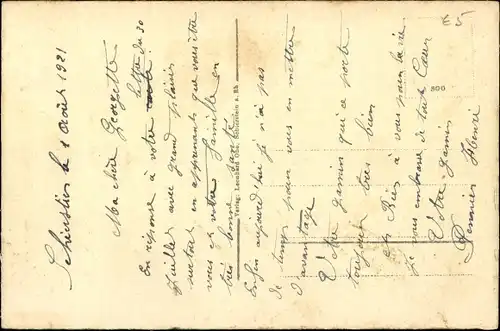 Schierstein le 1 Août 1921
Ma chère Georgette
En réponse à votre lettre du 30
Juillet avec grand plaisir
surtout en apprenant que vous être
vous et votre famille en
très bonne santé
Enfin aujourd'hui je n'ai pas
de temps pour vous en mettre
d'avantage
Votre gamin qui ce porte
toujours très bien
et Rien à vous pour la vie
je vous embrasse de tout Cœur
Votre gamin
Henri
Verlag: Schierstein a. Rh.
300
E 5